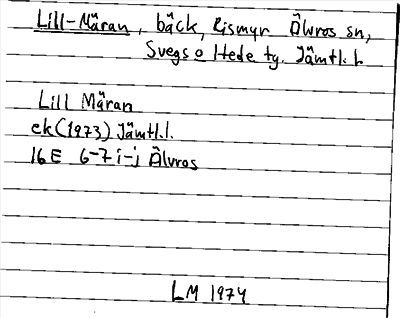 Lill-Märan, bäck, Rismyr Älvros sn,
Svegs o Hede tg. Jämtl. l.
Lill Märan
ek (1973) Jämtl. l.
16E 6-7 i-j Älvros
LM 1974